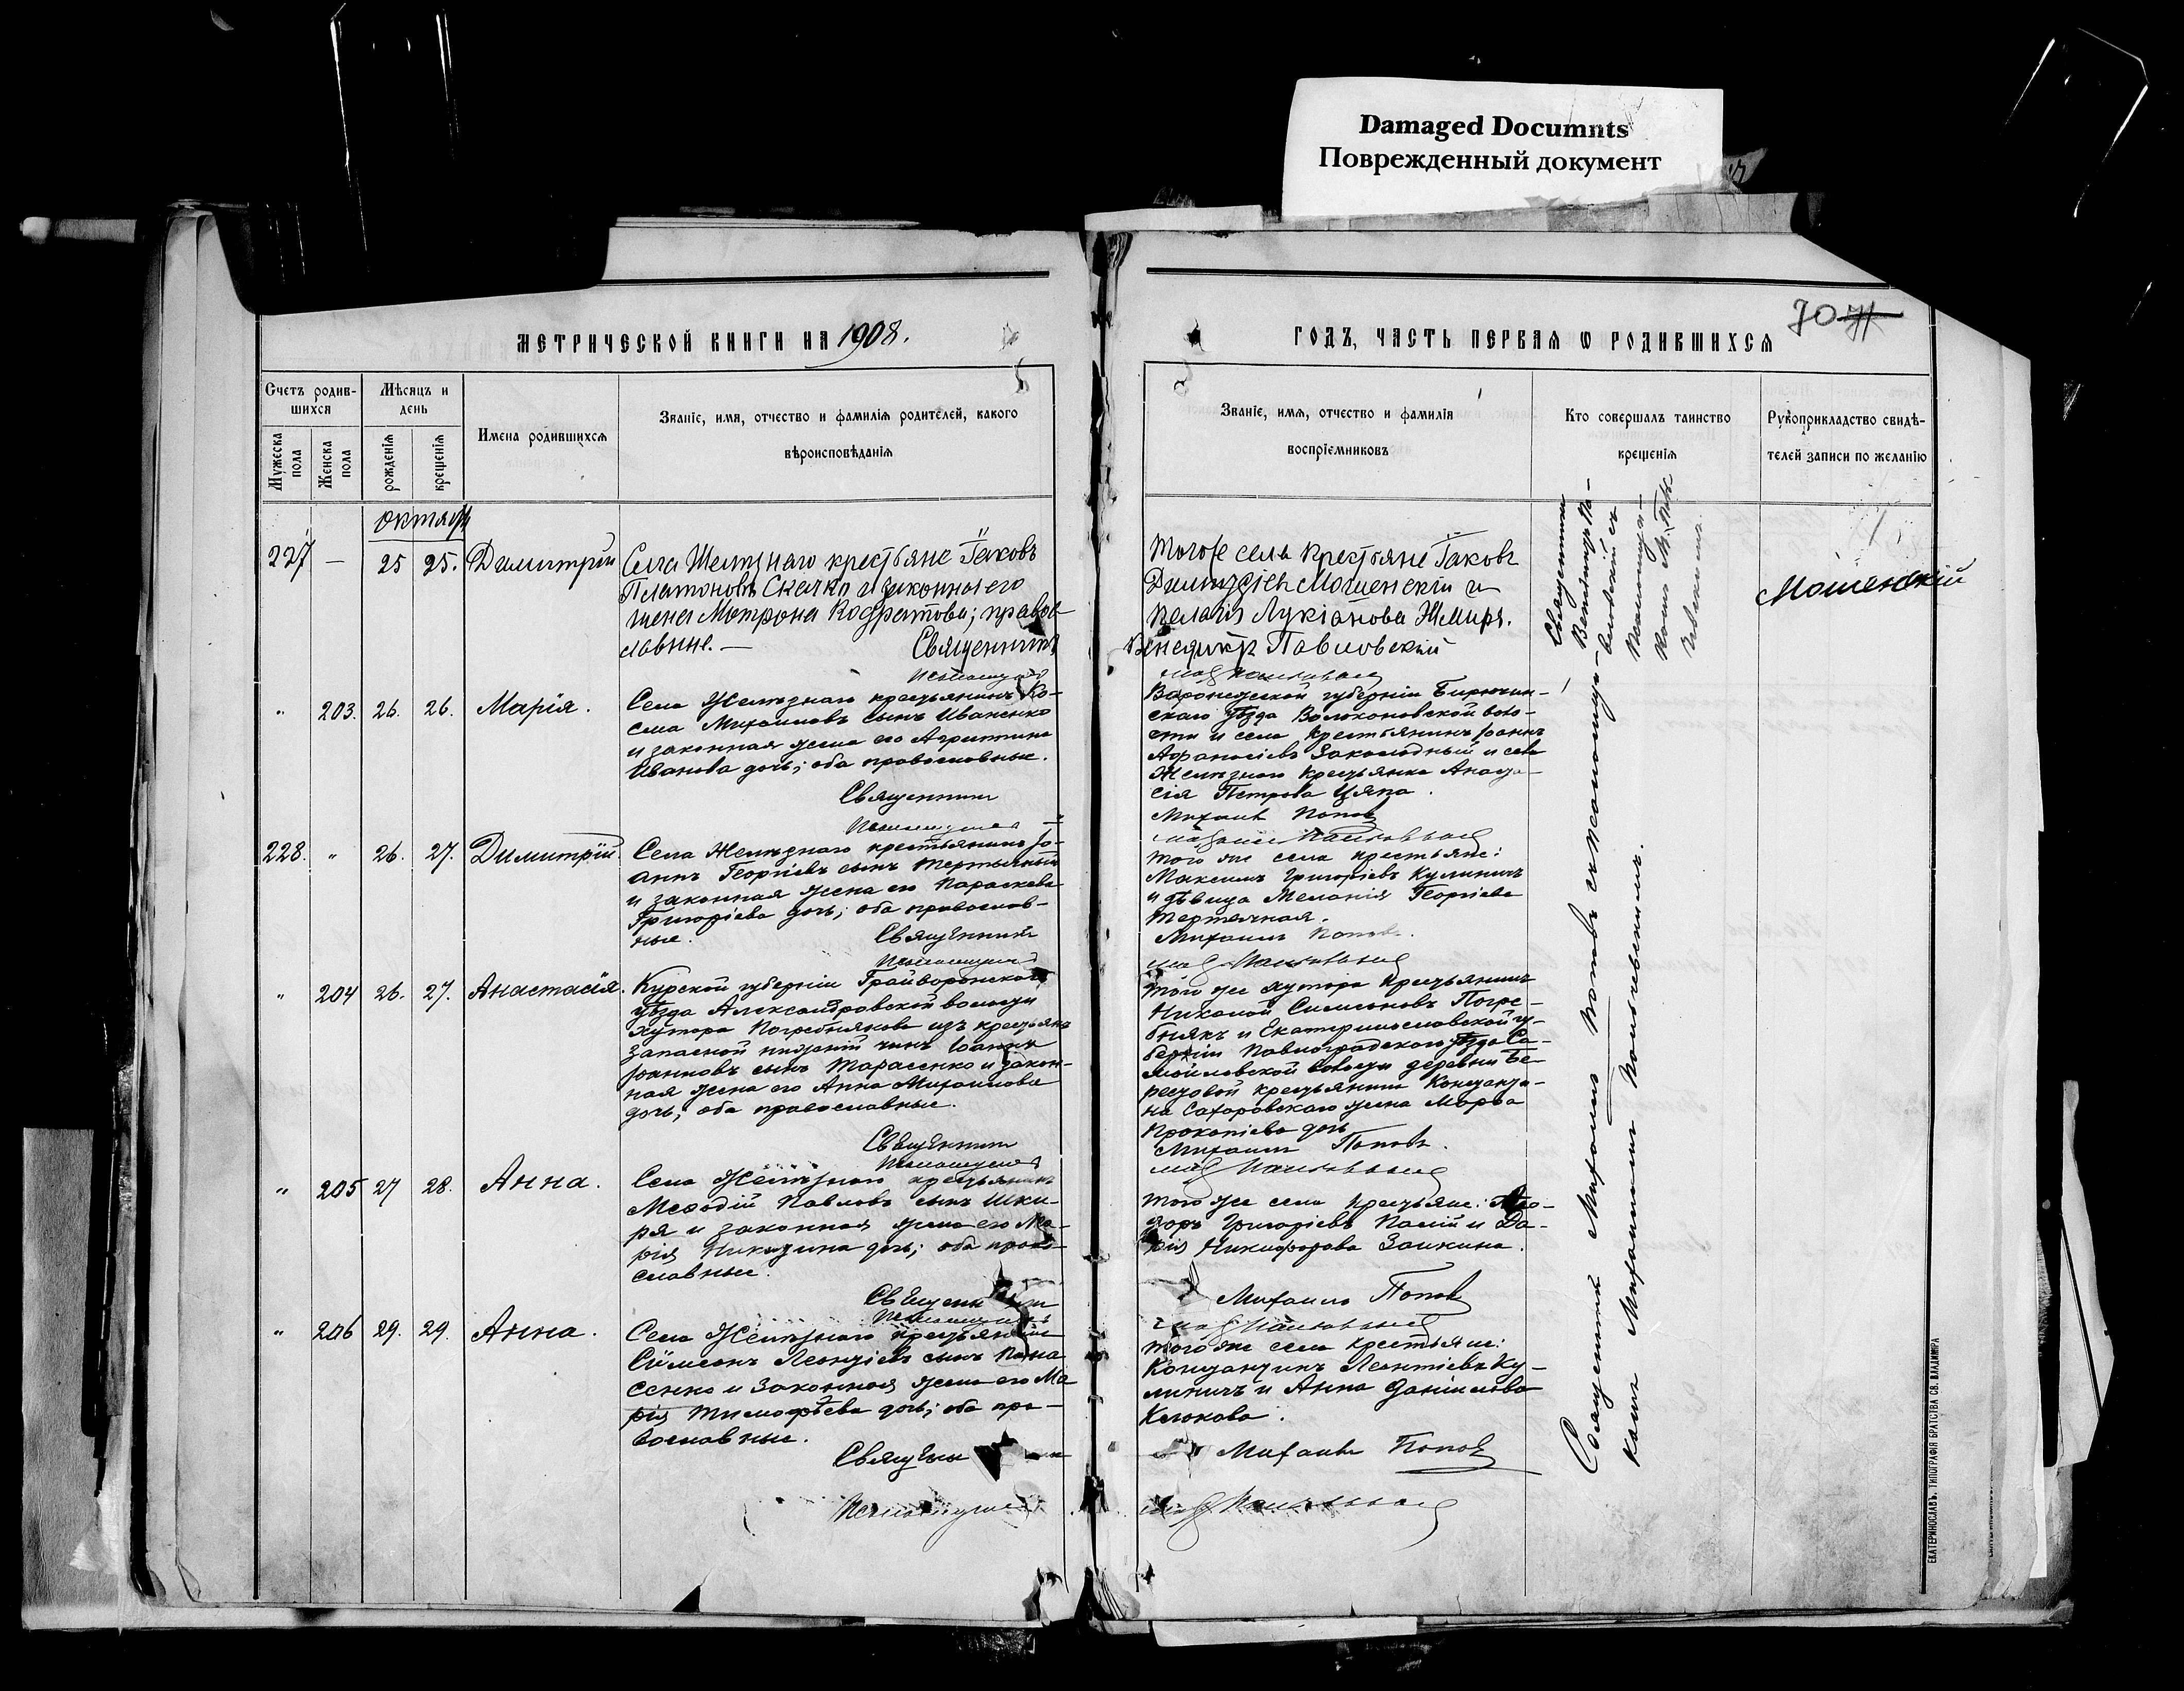 Damaged Documnts
Поврежденный документ
70 71
МЕТРИЧЕСКОЙ КНИГИ НА 1908.
ГОДЪ, ЧАСТЬ ПЕРВАЯ Ѡ РОДИВШИХСЯ
Счетъ родив-
шихся
Мѣсяцъ и
день
Мужеска
пола
Женска
пола
рожденія
крещенія
Имена родившихся
Званіе, имя, отчество и фамилія родителей, какого
вѣроисповѣданія
Званіе, имя, отчество и фамилія
воспріемниковъ
Кто совершалъ таинство
крещенія
Рукоприкладство свидѣ-
телей записи по желанію
октябрь
227 — 25 25. Димитрій
Села Желѣзнаго крестьяне Іаковъ
Платоновъ Скачко и законная его
жена Матрона Кодратова; правос
лавные. — Священникъ
Тогоже села крестьяне Іаковъ
Димитріевъ Мошенскій и
Пелагія Лукіанова Жмиря.
Венедиктъ Павловскій
Мошенскій
" 203. 26. 26. Марія.
Села Желѣзнаго крестьянинъ Ко-
сма Михаиловъ сынъ Иваненко
и законная жена его Агриппина
Иванова дочь; оба православные.
Священникъ
Воронежской губерніи Бирючин-
скаго уѣзда Волоконовской воло-
сти и села крестьянинъ Іоаннъ
Афанасіевъ Заколодный и села
Желѣзнаго крестьянка Анаста-
сія Петрова Цяпа.
Михаилъ Поповъ
228. " 26. 27. Димитрій.
Села Желѣзнаго крестьянинъ Іо-
аннъ Георгіевъ сынъ Тертычный
и законная жена его Параскева
Григоріева дочь; оба православ-
ные. Священникъ
Того же села крестьяне:
Максимъ Григоріевъ Кулиничъ
и дѣвица Меланія Георгіева
Тертычная.
Михаилъ Поповъ.
" 204 26. 27. Анастасія.
Курской губерніи Грайворонскаго
уѣзда Александровской волости
хутора Погребнякова изъ крестьянъ
запасной нижній чинъ Іоаннъ
Іоанновъ сынъ Тарасенко и закон-
ная жена его Анна Михаилова
дочь; оба православные.
Священникъ
Того же хутора крестьянинъ
Николай Симеоновъ Погре-
бнякъ и Екатеринославской гу-
берніи Павлоградскаго уѣзда Са-
мойловской волости деревни Бе-
рестовой крестьянина Константи-
на Сахаровскаго жена Марѳа
Прокопіева дочь
Михаилъ Поповъ.
" 205 27 28. Анна.
Села Желѣзнаго крестьянинъ
Меѳодій Павловъ сынъ Шки-
ря и законная жена его Ма-
рія Никитина дочь; оба право-
славные.
Священникъ
Того же села крестьяне:
Григоріевъ Палій и Да-
рія Никифорова Заикина.
Михаилъ Поповъ
" 206 29. 29. Анна.
Села Желѣзнаго крестьянинъ
Симеонъ Леонтіевъ сынъ Пана
сенко и законная жена его Ма
рія Тимофѣева дочь; оба пра-
вославные.
Священникъ
Того же села крестьяне:
Константинъ Леонтіевъ Ку-
линичъ и Анна Даніилова
Клокова.
Михаилъ Поповъ
Священникъ Михаилъ Поповъ съ псаломщи-
комъ Михаиломъ
ЕКАТЕРИНОСЛАВЪ, ТИПОГРАФІЯ БРАТСТВА СВ. ВЛАДИМІРА